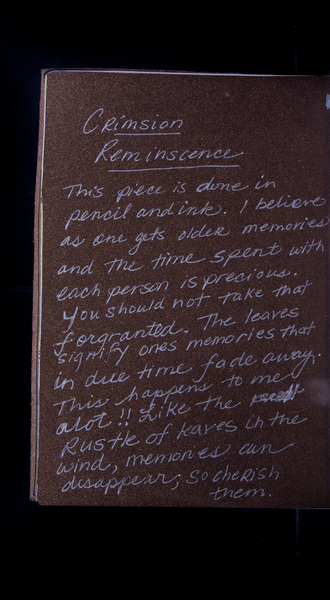 Crimsion
Reminscence
This piece is done in
pencil and ink. I believe
as one gets older memories
and the time spent with
each person is precious.
You should not take that
forgranted. The leaves
signify ones memories that
in due time fade away.
This happens to me
alot!! Like the
Rustle of leaves in the
wind, memories can
disappear; so cherish
them.